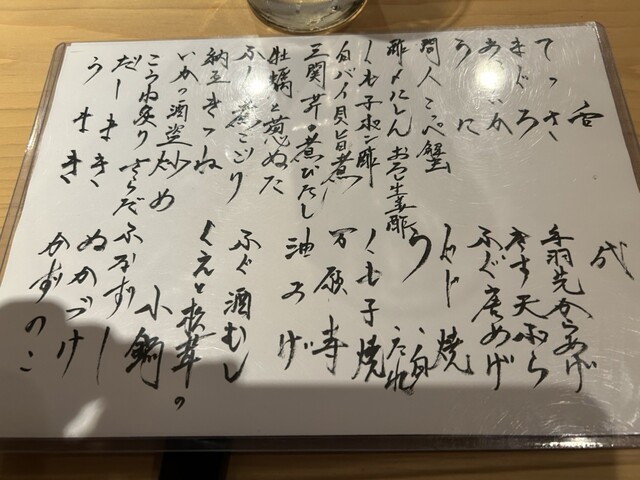 てっさ
まぐろ
あ
うに
間人こっぺ蟹
酢〆にしん おろし生姜酢
くも子ポン酢
白バイ貝旨煮
三関芹の煮びたし
牡蠣と葱ぬた
ふぐ煮こごり
納豆きつね
いかの酒盗炒め
こうね炙りさらだ
だしまき
うまき
手羽先からあげ
きす天ぷら
ふぐ唐あげ
焼 白 たれ
くも子焼
万願寺
油あげ
ふぐ酒むし
くえと松茸の
小鍋
ふなずし
ぬかづけ
かずのこ